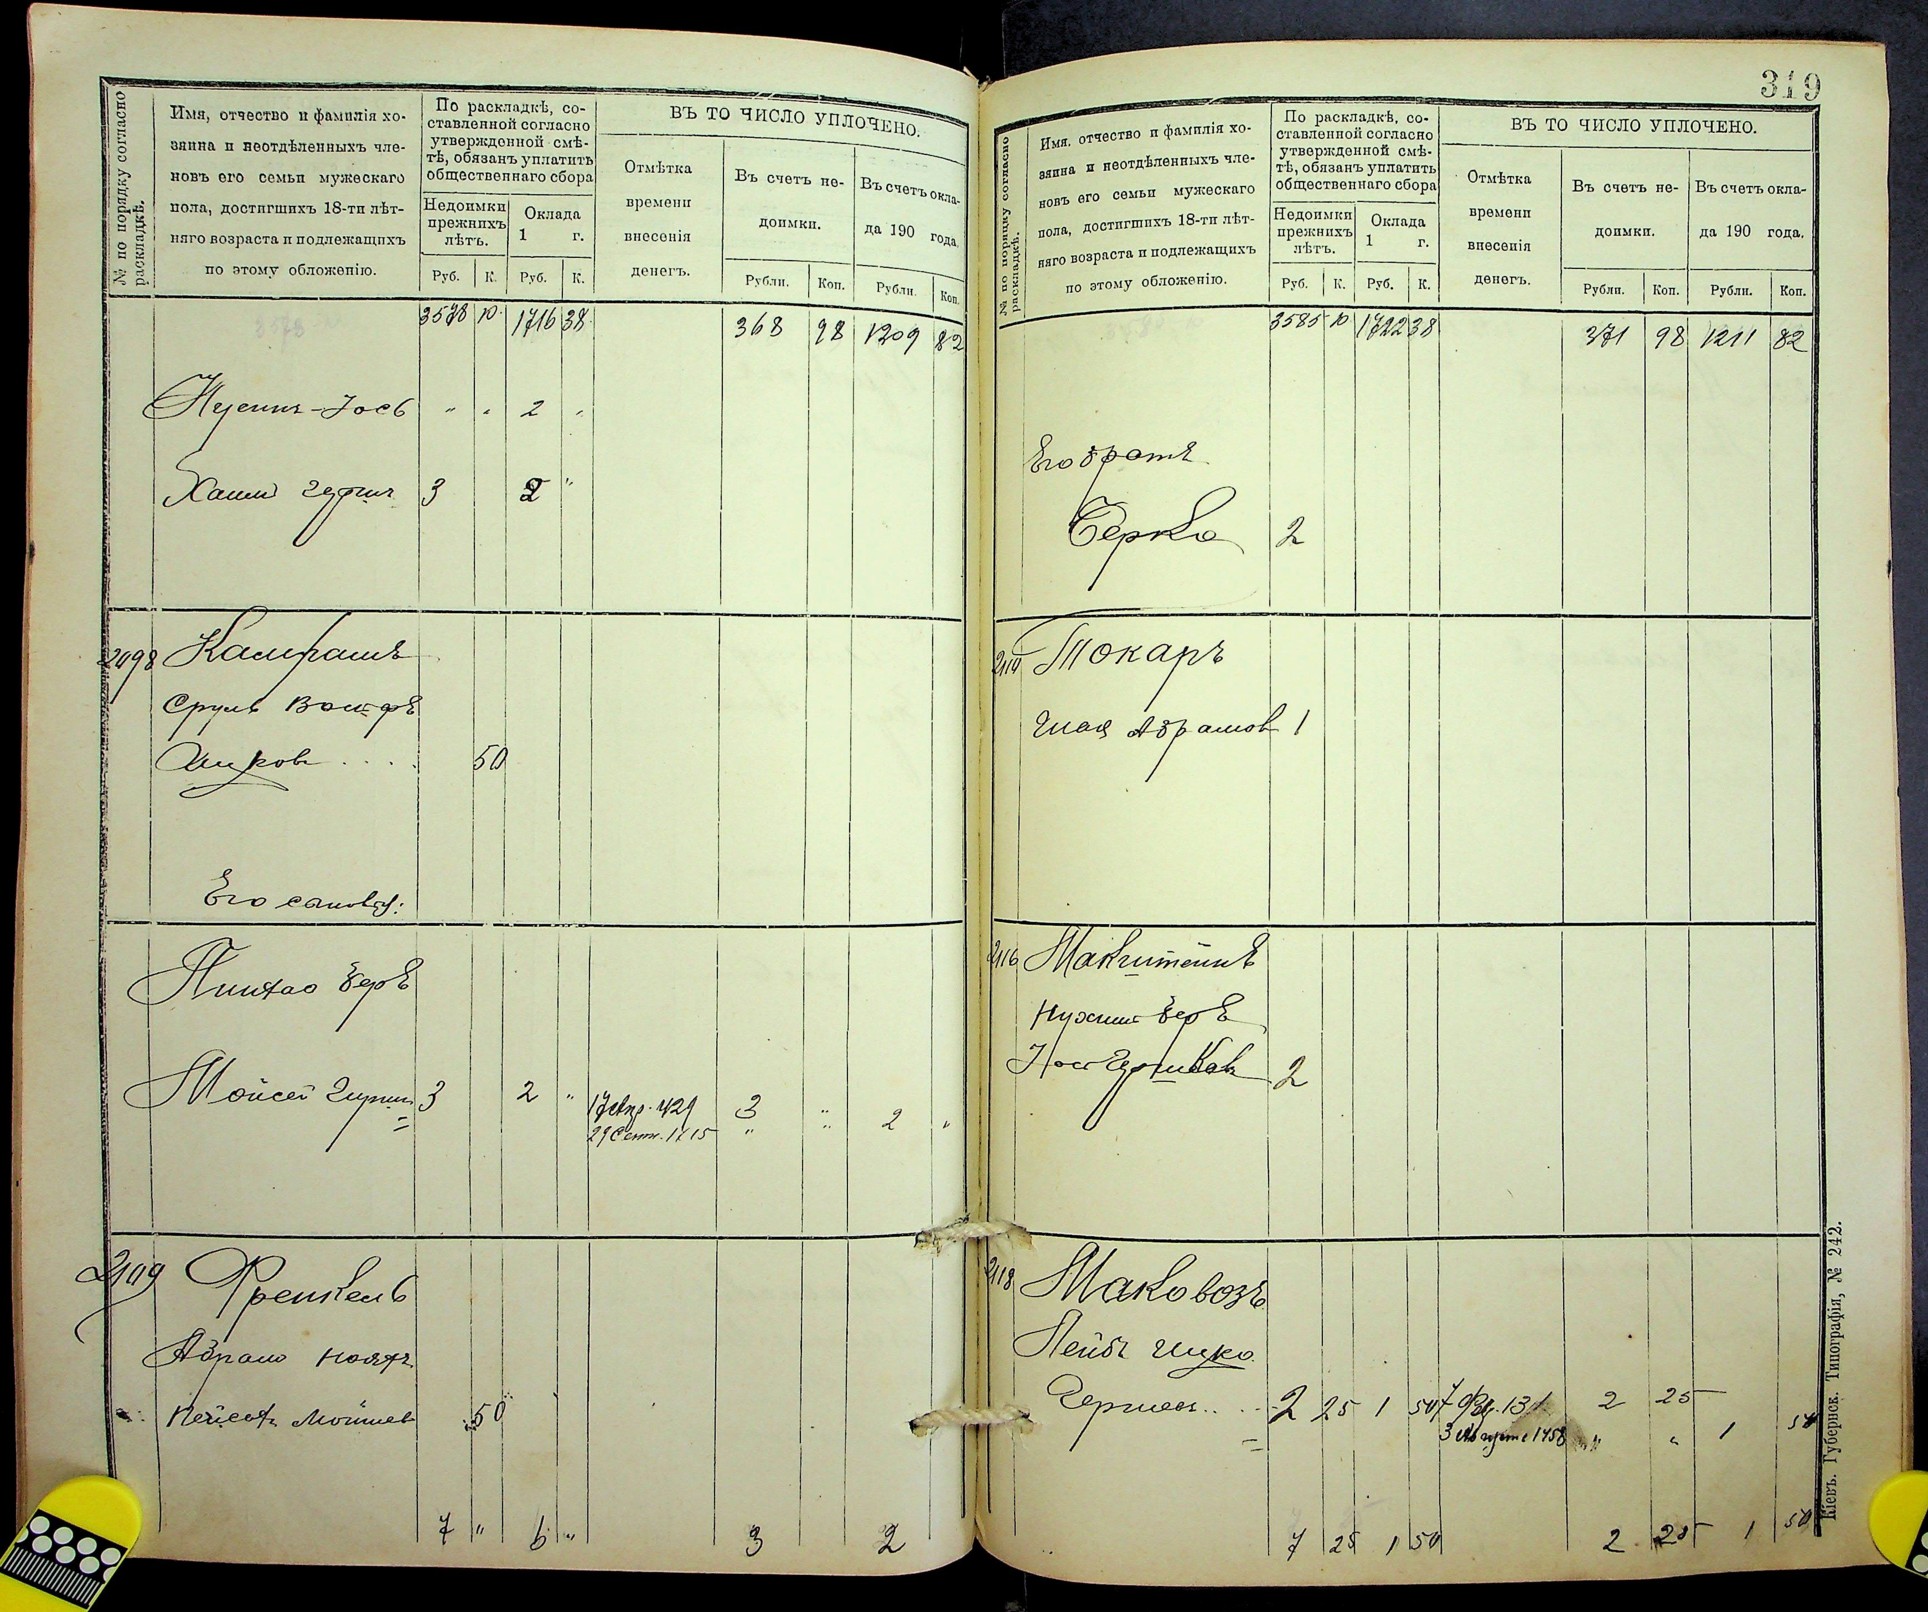 № по порядку согласно раскладкѣ.
Имя, отчество и фамилія хо-
зяина и неотдѣленныхъ чле-
новъ его семьи мужескаго
пола, достигшихъ 18-ти лѣт-
няго возраста и подлежащихъ
по этому обложенію.
По раскладкѣ, со-
ставленной согласно
утвержденной смѣ-
тѣ, обязанъ уплатить
общественнаго сбора
Недоимки
прежнихъ
лѣтъ.
Оклада
1 г.
Руб. К. Руб. К.
ВЪ ТО ЧИСЛО УПЛОЧЕНО.
Отмѣтка
времени
внесенія
денегъ.
Въ счетъ не-
доимки.
Въ счетъ окла-
да 190 года.
Рубли. Коп. Рубли. Коп.
3578 10 1716 38 368 98 1209 82
Нусинъ-Іось " " 2 "
Хаим 3 2 "
2098 Калирашъ
Сруль Вольфъ
Ицков .... 50
Его сыновья:
Пинхас Беръ
Мойсей 3 2 " 17 Апр. 429 3 " 2 "
29 Сент. 1415 "
2109 Френкель
Абрам
Мошков 50
7 " 6 " 3 2
319
№ по порядку согласно раскладкѣ.
Имя, отчество и фамилія хо-
зяина и неотдѣленныхъ чле-
новъ его семьи мужескаго
пола, достигшихъ 18-ти лѣт-
няго возраста и подлежащихъ
по этому обложенію.
По раскладкѣ, со-
ставленной согласно
утвержденной смѣ-
тѣ, обязанъ уплатить
общественнаго сбора
Недоимки
прежнихъ
лѣтъ.
Оклада
1 г.
Руб. К. Руб. К.
ВЪ ТО ЧИСЛО УПЛОЧЕНО.
Отмѣтка
времени
внесенія
денегъ.
Въ счетъ не-
доимки.
Въ счетъ окла-
да 190 года.
Рубли. Коп. Рубли. Коп.
3585 10 1722 38 371 98 1211 82
Его братъ
Берко 2
Токаръ
Абрамов 1
2116 Макштейнъ
Нухим Беръ
Гершков 2
2118 Маковозъ
Лейбъ Ицко
2 25 1 50 7 Фев. 131 2 25
3 Августа 1458 " " 1 50
7 25 1 50 2 25 1 50
Кіевъ. Губернск. Типографія, № 242.